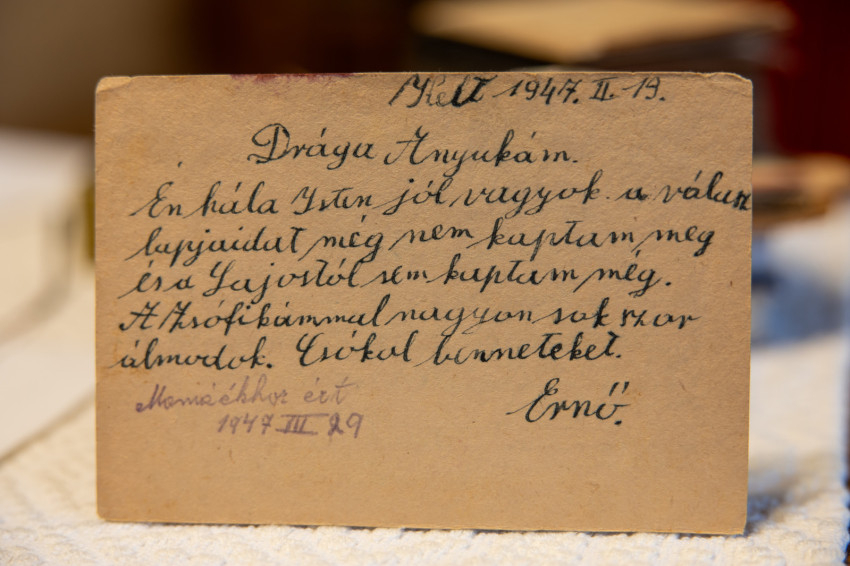 Kelt 1947. II. 19.
Drága Anyukám.
Én hála Isten jól vagyok. a válasz
lapjaidat még nem kaptam meg
és a Lajostól sem kaptam még.
A Zsófikámmal nagyon sok szor
álmodok. Csókol benneteket.
Ernő.
Mamáékhoz ért
1947 III 29